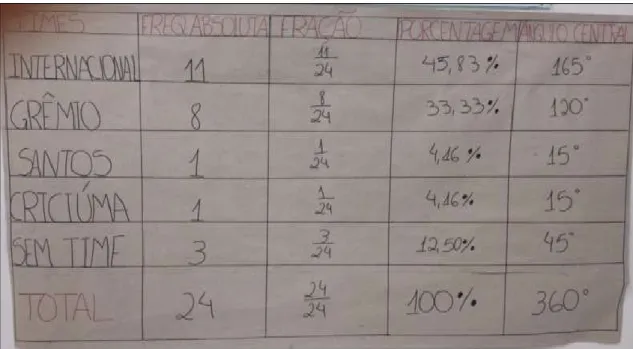 TIMES FREQ.ABSOLUTA FRAÇÃO PORCENTAGEM ÂNGULO CENTRAL
INTERNACIONAL 11 11/24 45,83% 165°
GRÊMIO 8 8/24 33,33% 120°
SANTOS 1 1/24 4,16% 15°
CRICIÚMA 1 1/24 4,16% 15°
SEM TIME 3 3/24 12,50% 45°
TOTAL 24 24/24 100% 360°